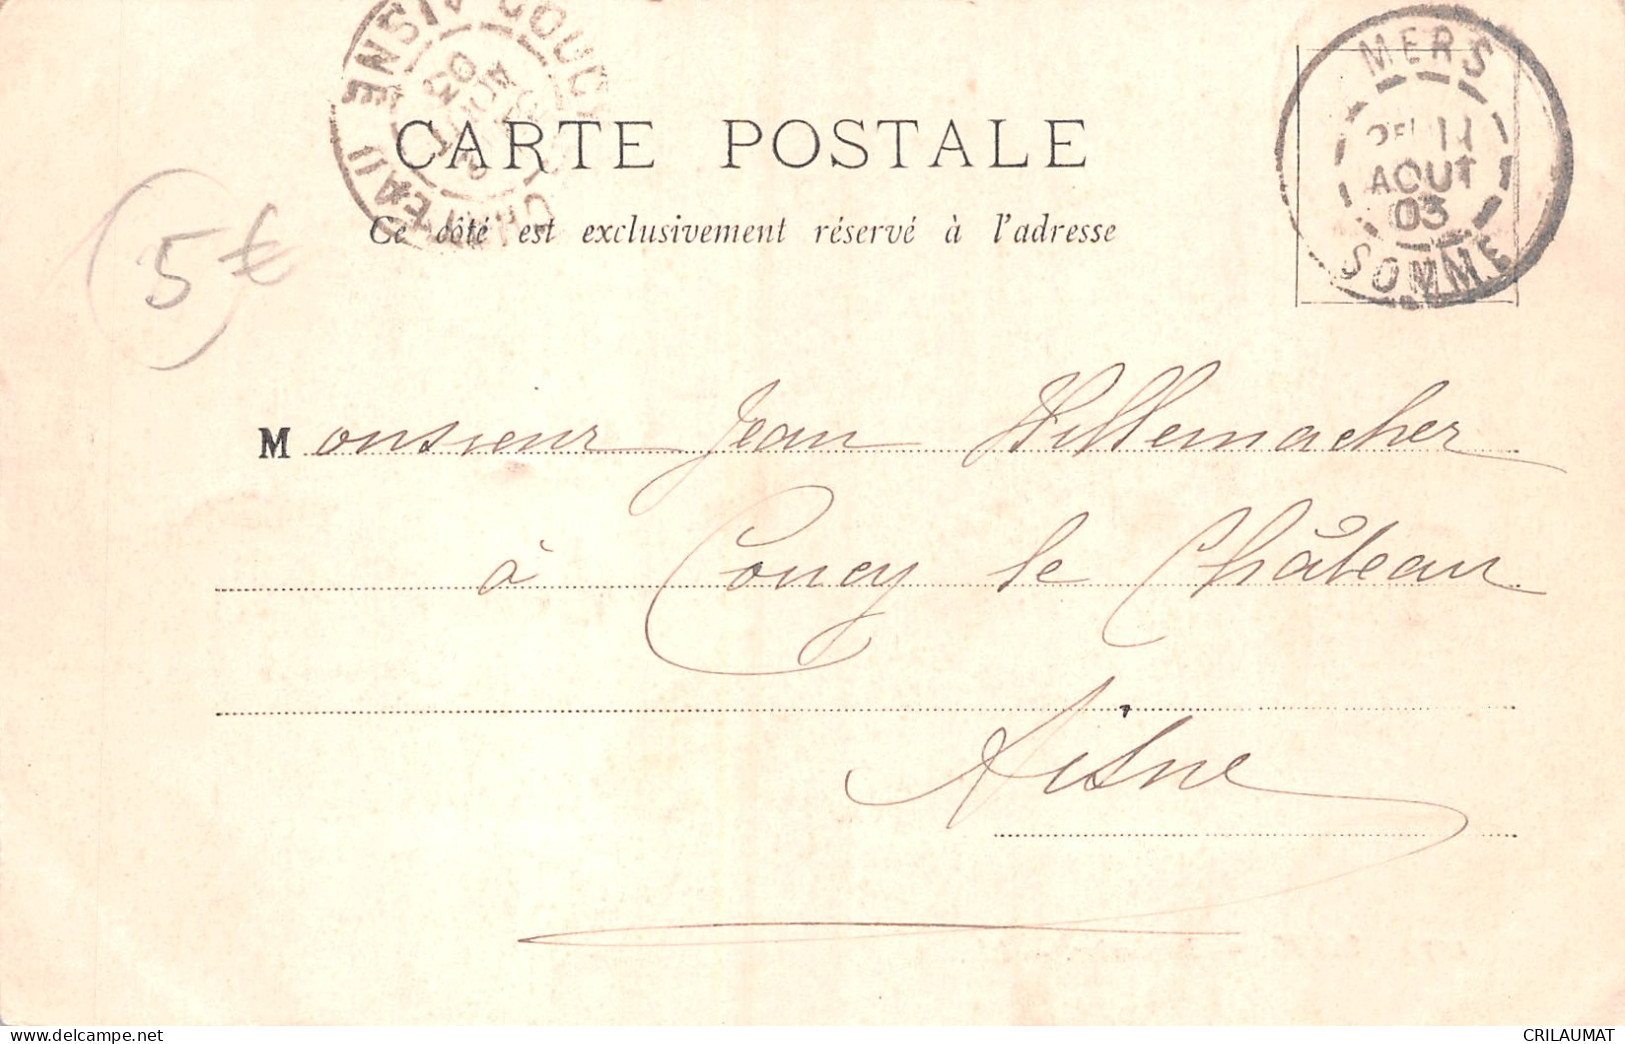 CARTE POSTALE
Ce côté est exclusivement réservé à l'adresse
MERS
11
AOUT
03
SOMME
AISNE
03
5€
Monsieur Jean Willemacher
à Coucy le Château
Aisne
www.delcampe.net
CRILAUMAT